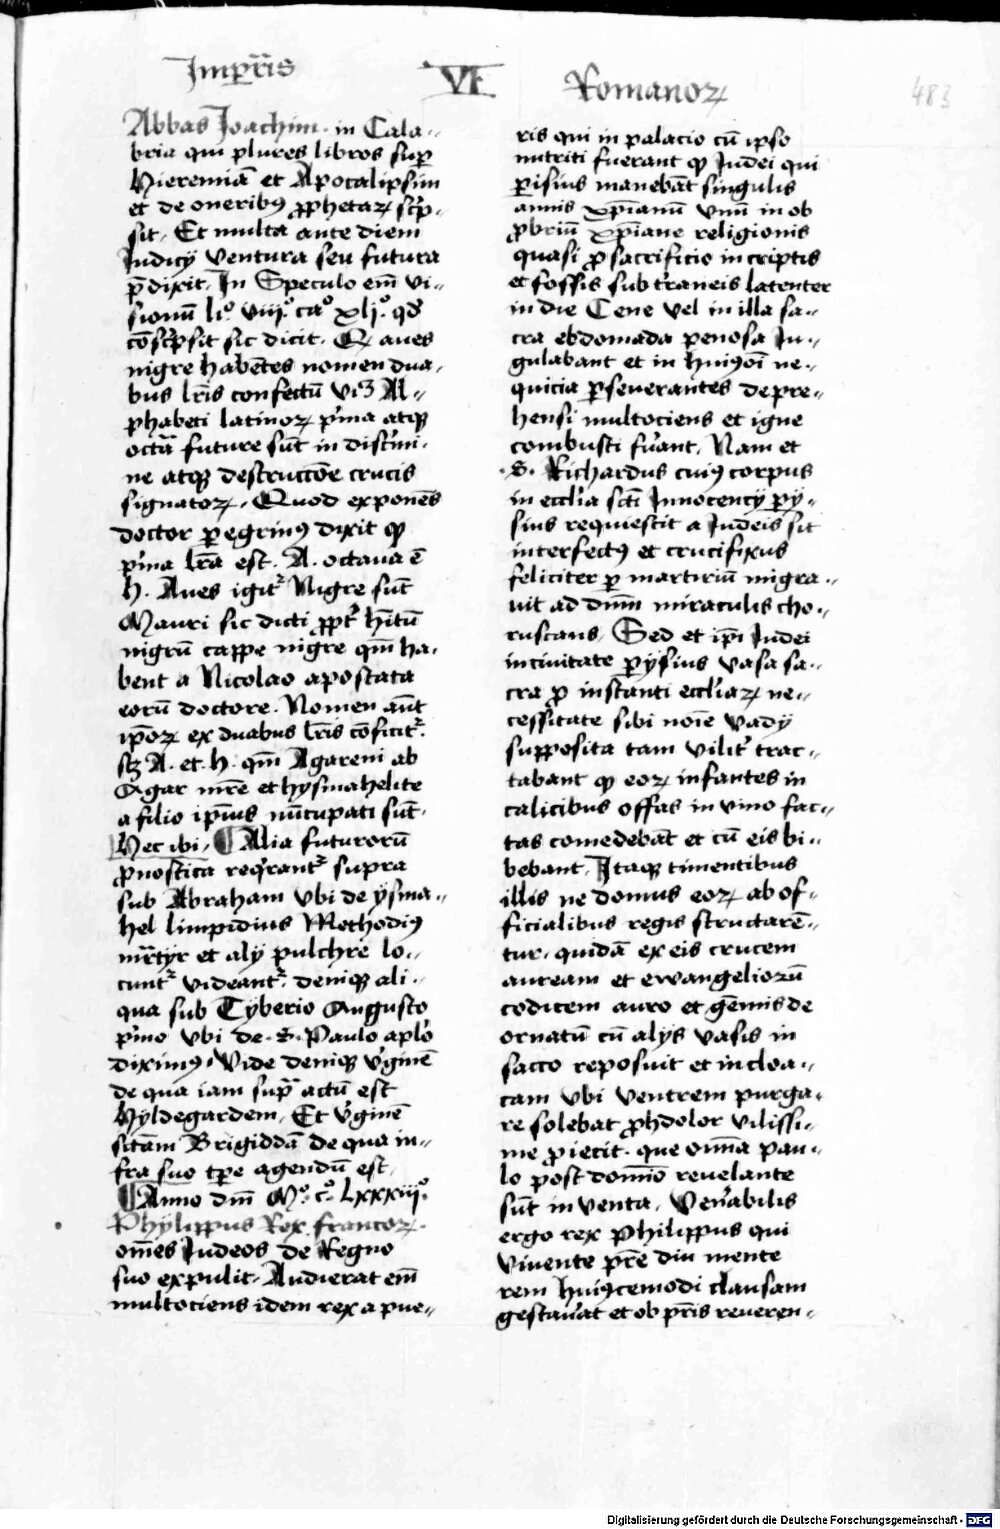 Imp̄r̄is VI Romanoꝝ 483
Abbas Joachim · in Cala-
bria qui plures libros sup̄
Hieremiā et Apocalipsim
et de oneribꝰ ꝓphetaꝝ sc̄p-
sit, Et multa ante diem
Iudicij ventura seu futura
p̄dixit, In Speculo em̄ vi-
sionū liº. viijº. caº xljº. qd̄
cōsc̄psit sic dicit. Ꝙ aues
nigre habētes nomen dua-
bus lr̄is confectū viꝫ Al-
phabeti latinoꝝ p̄ma atqꝫ
octā future sūt in discˀmi-
ne atqꝫ destructōe crucis
signatoꝝ. Quod exponēs
doctor peregrinꝰ dixit ꝙ
p̄ma lr̄a est. A. octaua ē
h. Aues igitˀ Nigre sūt
Mauri sic dicti ꝓptˀ hītū
nigrū cappe nigre qm̄ ha-
bent a Nicolao apostata
eorū doctore. Nomen aūt
ip̄oꝝ ex duabus lr̄is cōficitˀ.
scꝫ A. et. h. qm̄ Agareni ab
Agar mr̄e et hysmahelite
a filio ip̄ius nūcupati sūt.
Hec ibi, ¶ Alia futurorū
ꝓnostica reqˀrantˀ supra
sub Abraham vbi de ysma-
hel limpidius Methodiꝰ
mr̄tyr et alij pulchre lo-
cuntˀ videantˀ. deniqꝫ ali-
qua sub Tyberio Augusto
p̄mo vbi de. S. Paulo apl̄o
diximꝰ, Vide deniqꝫ v̄ginē
de qua iam sup̄ actū est
Hyldegardem, Et v̄ginē
sc̄tam Brigiddā de qua in-
fra suo tp̄e agendū est,
¶ Anno dm̄ Mº. cº. Lxxxiijº.
Phylippus Rex francoꝝ.
om̄es Iudeos de Regno
suo expulit. Audierat em̄
multociens idem rex a pue-
ris qui in palacio cū ipso
nutriti fuerant ꝙ Iudei qui
ꝑisius manebāt singulis
annis xp̄ianū vnū in ob
ꝓbriū xp̄iane religionis
quasi ꝓ sacrificio in criptis
et fossis subtˀraneis latenter
in die Cene vel in illa sa-
cra ebdomada penosa Iu-
gulabant et in huiꝰmōi ne-
quicia ꝑseuerantes depre-
hensi multociens et igne
combusti fuˀant, Nam et
·S· Richardus cuiꝰ corpus
in eccl̄ia sc̄ti Innocencij pij-
sius requiescit a Iudeis sit
interfectꝰ et crucifixus
feliciter ꝑ martiriū migra-
uit ad dn̄m miraculis cho-
ruscans, Sed et ip̄i Iudei
in ciuitate pijsius vasa sa-
cra ꝓ instanti eccl̄iaꝝ ne-
cessitate sibi noīe vadij
supposita tam vilitˀ trac-
tabant ꝙ eoꝝ infantes in
calicibus offas in vino fac-
tas comedebāt et cū eis bi-
bebant, Itaqꝫ timentibus
illis ne domus eoꝝ ab of-
ficialibus regis scructarē-
tur. quidā ex eis crucem
auream et ewangeliorū
codicem auro et gēmis de
ornatū cū alijs vasis in
sacco reposuit et in cloa-
cam vbi ventrem purga-
re solebat ꝓhdolor vilissi-
me ꝓiecit. que om̄ia pau-
lo post dom̄io reuelante
sūt in venta, Venˀabilis
ergo rex Philippus qui
viuente pr̄e diu mente
rem huiꝰcemodi clausam
gestauˀat et ob pr̄is reueren-
Digitalisierung gefördert durch die Deutsche Forschungsgemeinschaft - DFG